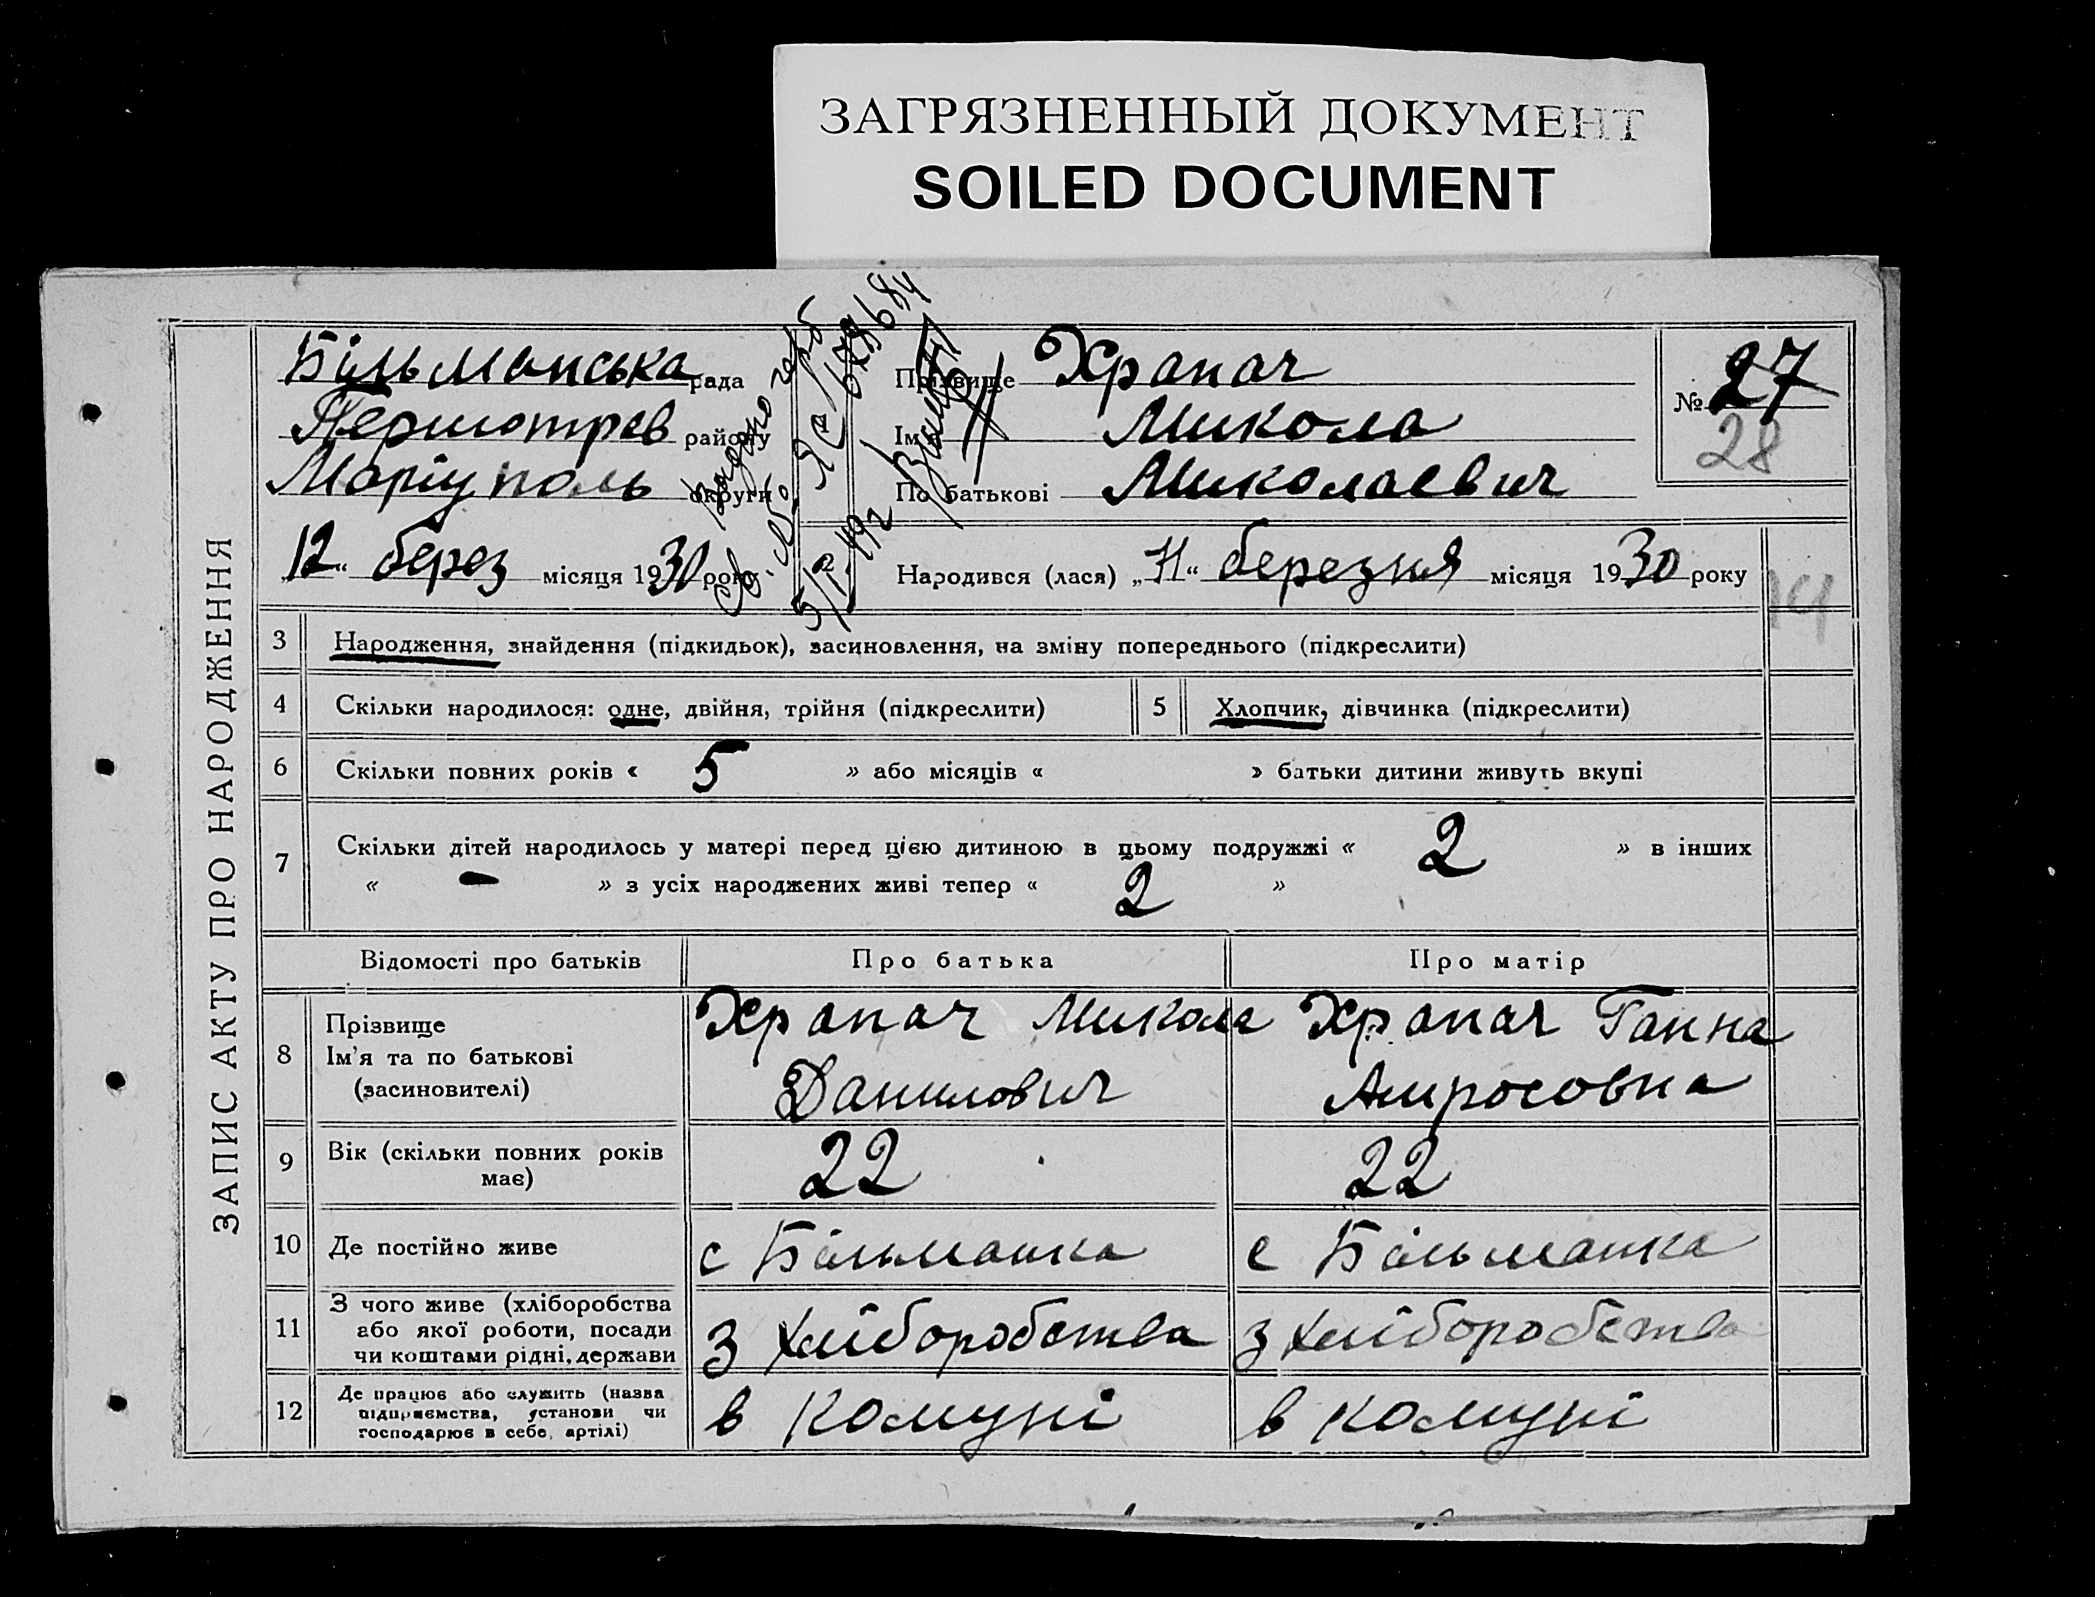 ЗАГРЯЗНЕННЫЙ ДОКУМЕНТ
SOILED DOCUMENT
ЗАПИС АКТУ ПРО НАРОДЖЕННЯ
Більманська рада
Першотрав району
Маріуполь округи
„12“ берез місяця 1930 року
Видано
ЯС
Прізвище Храпач
Ім'я Микола
По батькові Миколаевич
№ 27
28
Народився (лася) „11“ березня місяця 1930 року
3 Народження, знайдення (підкидьок), засиновлення, на зміну попереднього (підкреслити)
4 Скільки народилося: одне, двійня, трійня (підкреслити) 5 Хлопчик, дівчинка (підкреслити)
6 Скільки повних років « 5 » або місяців « » батьки дитини живуть вкупі
7 Скільки дітей народилось у матері перед цією дитиною в цьому подружжі « 2 » в інших
« – » з усіх народжених живі тепер « 2 »
Відомості про батьків Про батька Про матір
8 Прізвище Ім'я та по батькові (засиновителі) Храпач Микола Данилович Храпач Ганна
9 Вік (скільки повних років має) 22 22
10 Де постійно живе с Більманка с Більманка
11 З чого живе (хліборобства або якої роботи, посади чи коштами рідні, держави З хліборобства З хліборобства
12 Де працює або служить (назва підприємства, установи чи господарює в себе, артілі) в комуні в комуні